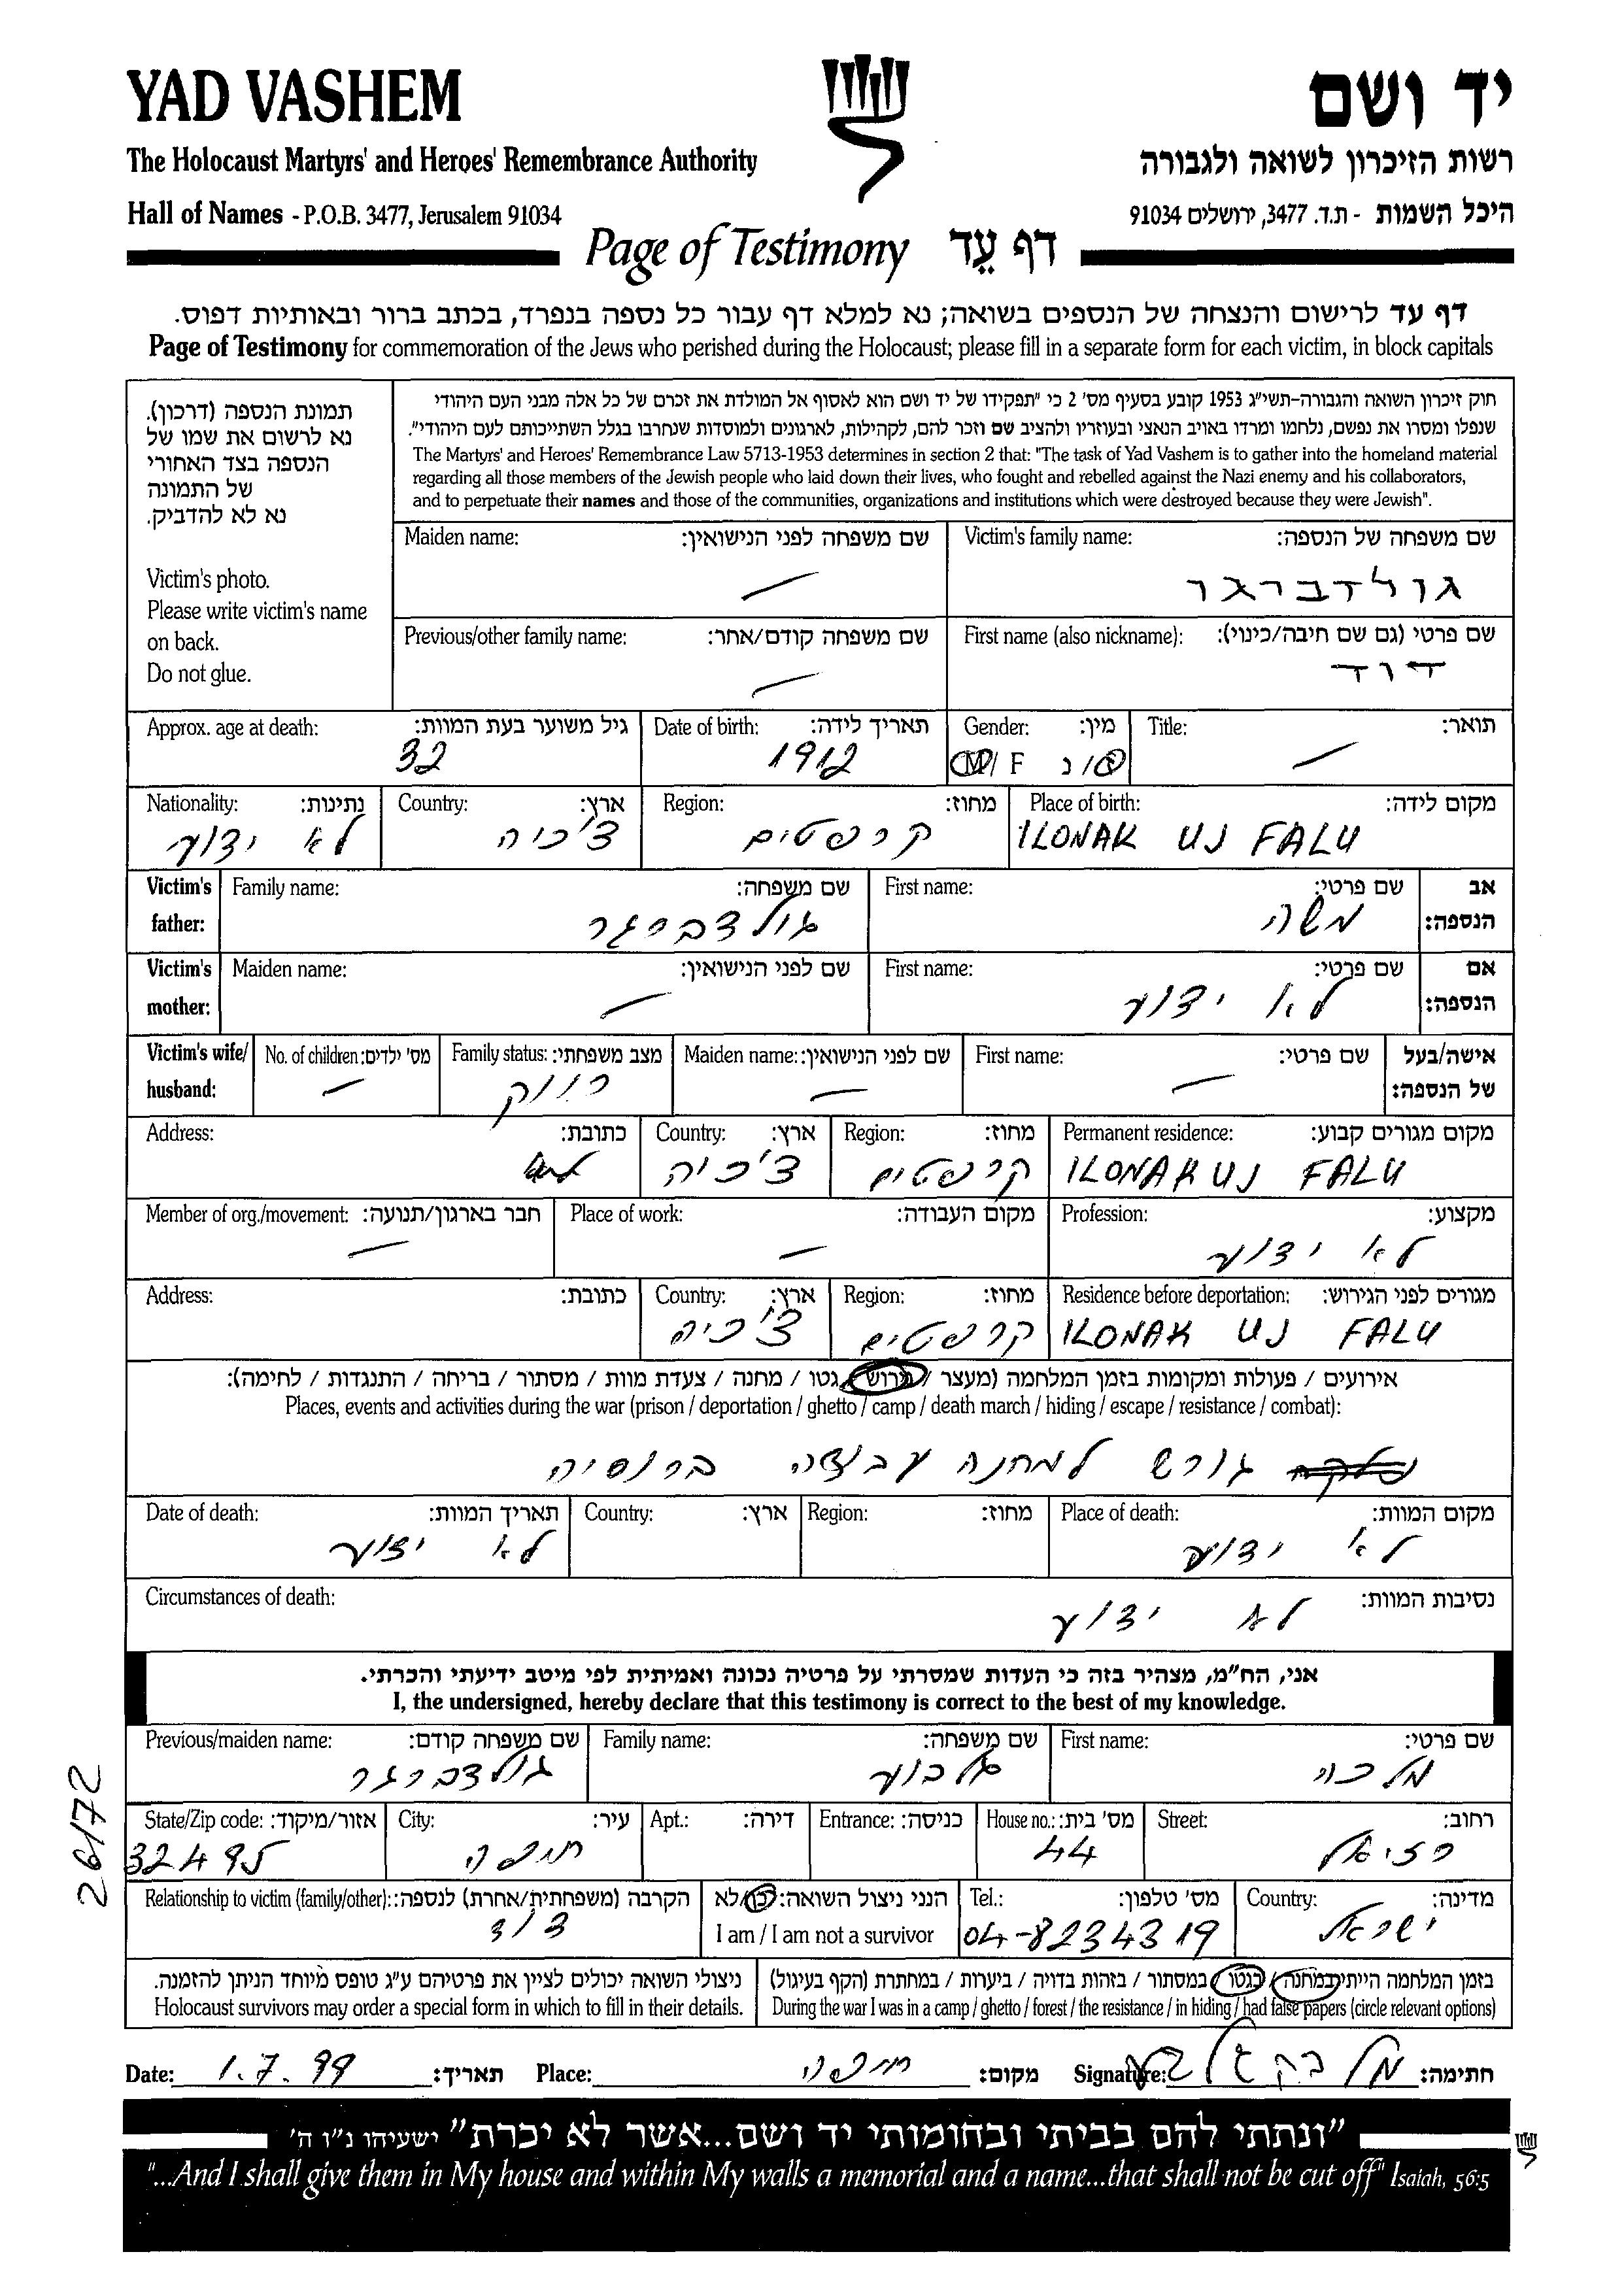 YAD VASHEM
יד ושם
The Holocaust Martyrs' and Heroes' Remembrance Authority
רשות הזיכרון לשואה ולגבורה
Hall of Names - P.O.B. 3477, Jerusalem 91034
היכל השמות - ת.ד. 3477, ירושלים 91034
Page of Testimony דף עֵד
דף עד לרישום והנצחה של הנספים בשואה; נא למלא דף עבור כל נספה בנפרד, בכתב ברור ובאותיות דפוס.
Page of Testimony for commemoration of the Jews who perished during the Holocaust; please fill in a separate form for each victim, in block capitals
תמונת הנספה (דרכון).
נא לרשום את שמו של
הנספה בצד האחורי
של התמונה
נא לא להדביק.
Victim's photo.
Please write victim's name
on back.
Do not glue.
חוק זיכרון השואה והגבורה-תשי"ג 1953 קובע בסעיף מס' 2 כי "תפקידו של יד ושם הוא לאסוף אל המולדת את זכרם של כל אלה מבני העם היהודי
שנפלו ומסרו את נפשם, נלחמו ומרדו באויב הנאצי ובעוזריו ולהציב שם וזכר להם, לקהילות, לארגונים ולמוסדות שנחרבו בגלל השתייכותם לעם היהודי".
The Martyrs' and Heroes' Remembrance Law 5713-1953 determines in section 2 that: "The task of Yad Vashem is to gather into the homeland material
regarding all those members of the Jewish people who laid down their lives, who fought and rebelled against the Nazi enemy and his collaborators,
and to perpetuate their names and those of the communities, organizations and institutions which were destroyed because they were Jewish".
Maiden name: שם משפחה לפני הנישואין: Victim's family name: שם משפחה של הנספה:
— גולדברגר
Previous/other family name: שם משפחה קודם/אחר: First name (also nickname): שם פרטי (גם שם חיבה/כינוי):
— דוד
Approx. age at death: גיל משוער בעת המוות: Date of birth: תאריך לידה: Gender: מין: Title: תואר:
32 1912 M/ F ז/נ —
Nationality: נתינות: Country: ארץ: Region: מחוז: Place of birth: מקום לידה:
לא ידוע צ'כיה קרפטים ILONAK UJ FALU
Victim's Family name: שם משפחה: First name: שם פרטי: אב
father: גולדברגר משה הנספה:
Victim's Maiden name: שם לפני הנישואין: First name: שם פרטי: אם
mother: — לא ידוע הנספה:
Victim's wife/ No. of children: מס' ילדים: Family status: מצב משפחתי: Maiden name: שם לפני הנישואין: First name: שם פרטי: אישה/בעל
husband: — רווק — — של הנספה:
Address: כתובת: Country: ארץ: Region: מחוז: Permanent residence: מקום מגורים קבוע:
צ'כיה קרפטים ILONAK UJ FALU
Member of org./movement: חבר בארגון/תנועה: Place of work: מקום העבודה: Profession: מקצוע:
— — לא ידוע
Address: כתובת: Country: ארץ: Region: מחוז: Residence before deportation: מגורים לפני הגירוש:
צ'כיה קרפטים ILONAK UJ FALU
אירועים / פעולות ומקומות בזמן המלחמה (מעצר / גירוש / גטו / מחנה / צעדת מוות / מסתור / בריחה / התנגדות / לחימה):
Places, events and activities during the war (prison / deportation / ghetto / camp / death march / hiding / escape / resistance / combat):
גורש למחנה עבודה ברוסיה
Date of death: תאריך המוות: Country: ארץ: Region: מחוז: Place of death: מקום המוות:
לא ידוע לא ידוע
Circumstances of death: נסיבות המוות:
לא ידוע
אני, הח"מ, מצהיר בזה כי העדות שמסרתי על פרטיה נכונה ואמיתית לפי מיטב ידיעתי והכרתי.
I, the undersigned, hereby declare that this testimony is correct to the best of my knowledge.
Previous/maiden name: שם משפחה קודם: Family name: שם משפחה: First name: שם פרטי:
גולדברגר גלבוע מלכה
State/Zip code: אזור/מיקוד: City: עיר: Apt.: דירה: Entrance: כניסה: House no.: מס' בית: Street: רחוב:
32495 חיפה 44 רזיאל
Relationship to victim (family/other): הקרבה (משפחתית/אחרת) לנספה: הנני ניצול השואה: כן/לא Tel.: מס' טלפון: Country: מדינה:
דוד I am / I am not a survivor 04-8234319 ישראל
ניצולי השואה יכולים לציין את פרטיהם ע"ג טופס מיוחד הניתן להזמנה. בזמן המלחמה הייתי במחנה / בגטו / במסתור / בזהות בדויה / ביערות / במחתרת (הקף בעיגול)
Holocaust survivors may order a special form in which to fill in their details. During the war I was in a camp / ghetto / forest / the resistance / in hiding / had false papers (circle relevant options)
Date: 1.7.99 תאריך: Place: חיפה מקום: Signature: מלכה גלבוע חתימה:
"ונתתי להם בביתי ובחומותי יד ושם...אשר לא יכרת" ישעיהו נ"ו ה'
"...And I shall give them in My house and within My walls a memorial and a name...that shall not be cut off" Isaiah, 56:5
26/72